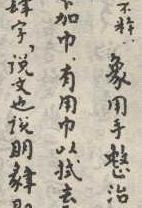 不解．
象用手整治
加巾，有用巾以拭去
肆字，说文也说明肄